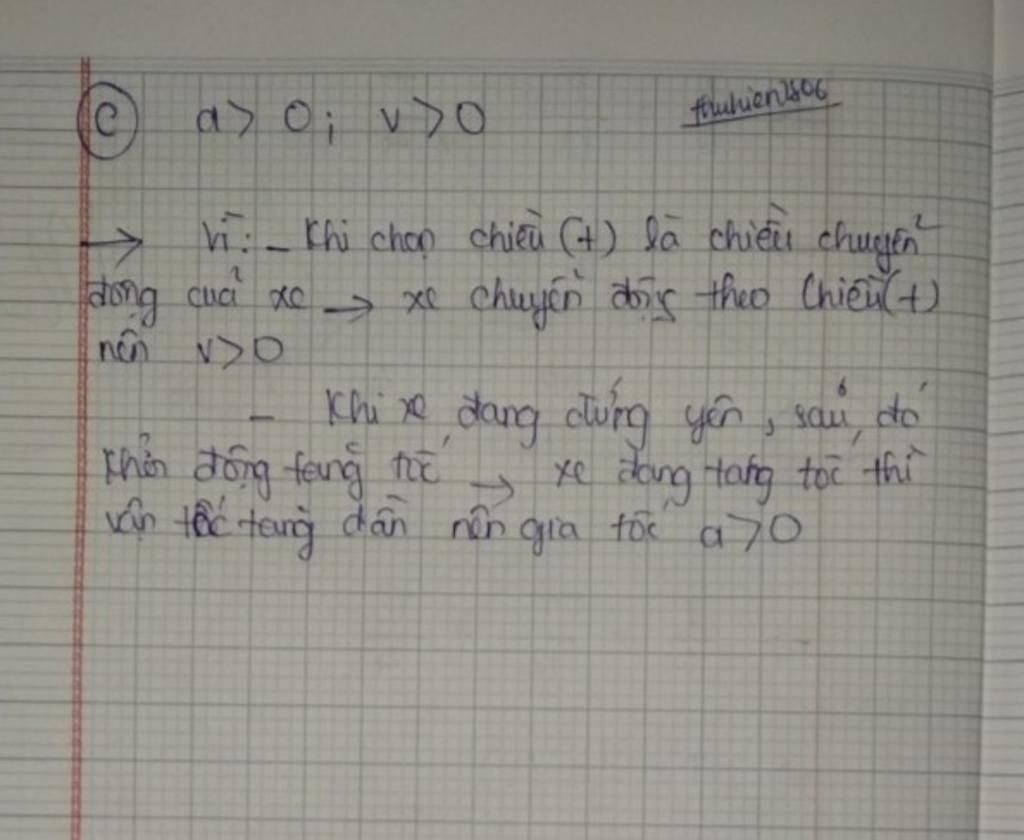 C a > 0; v > 0 thuhien2806
→ Vì: - Khi chọn chiều (+) là chiều chuyển
động của xe → xe chuyển động theo chiều (+)
nên v > 0
- Khi xe đang đứng yên, sau đó
khởi động tăng tốc → xe đang tăng tốc thì
vận tốc tăng dần nên gia tốc a > 0